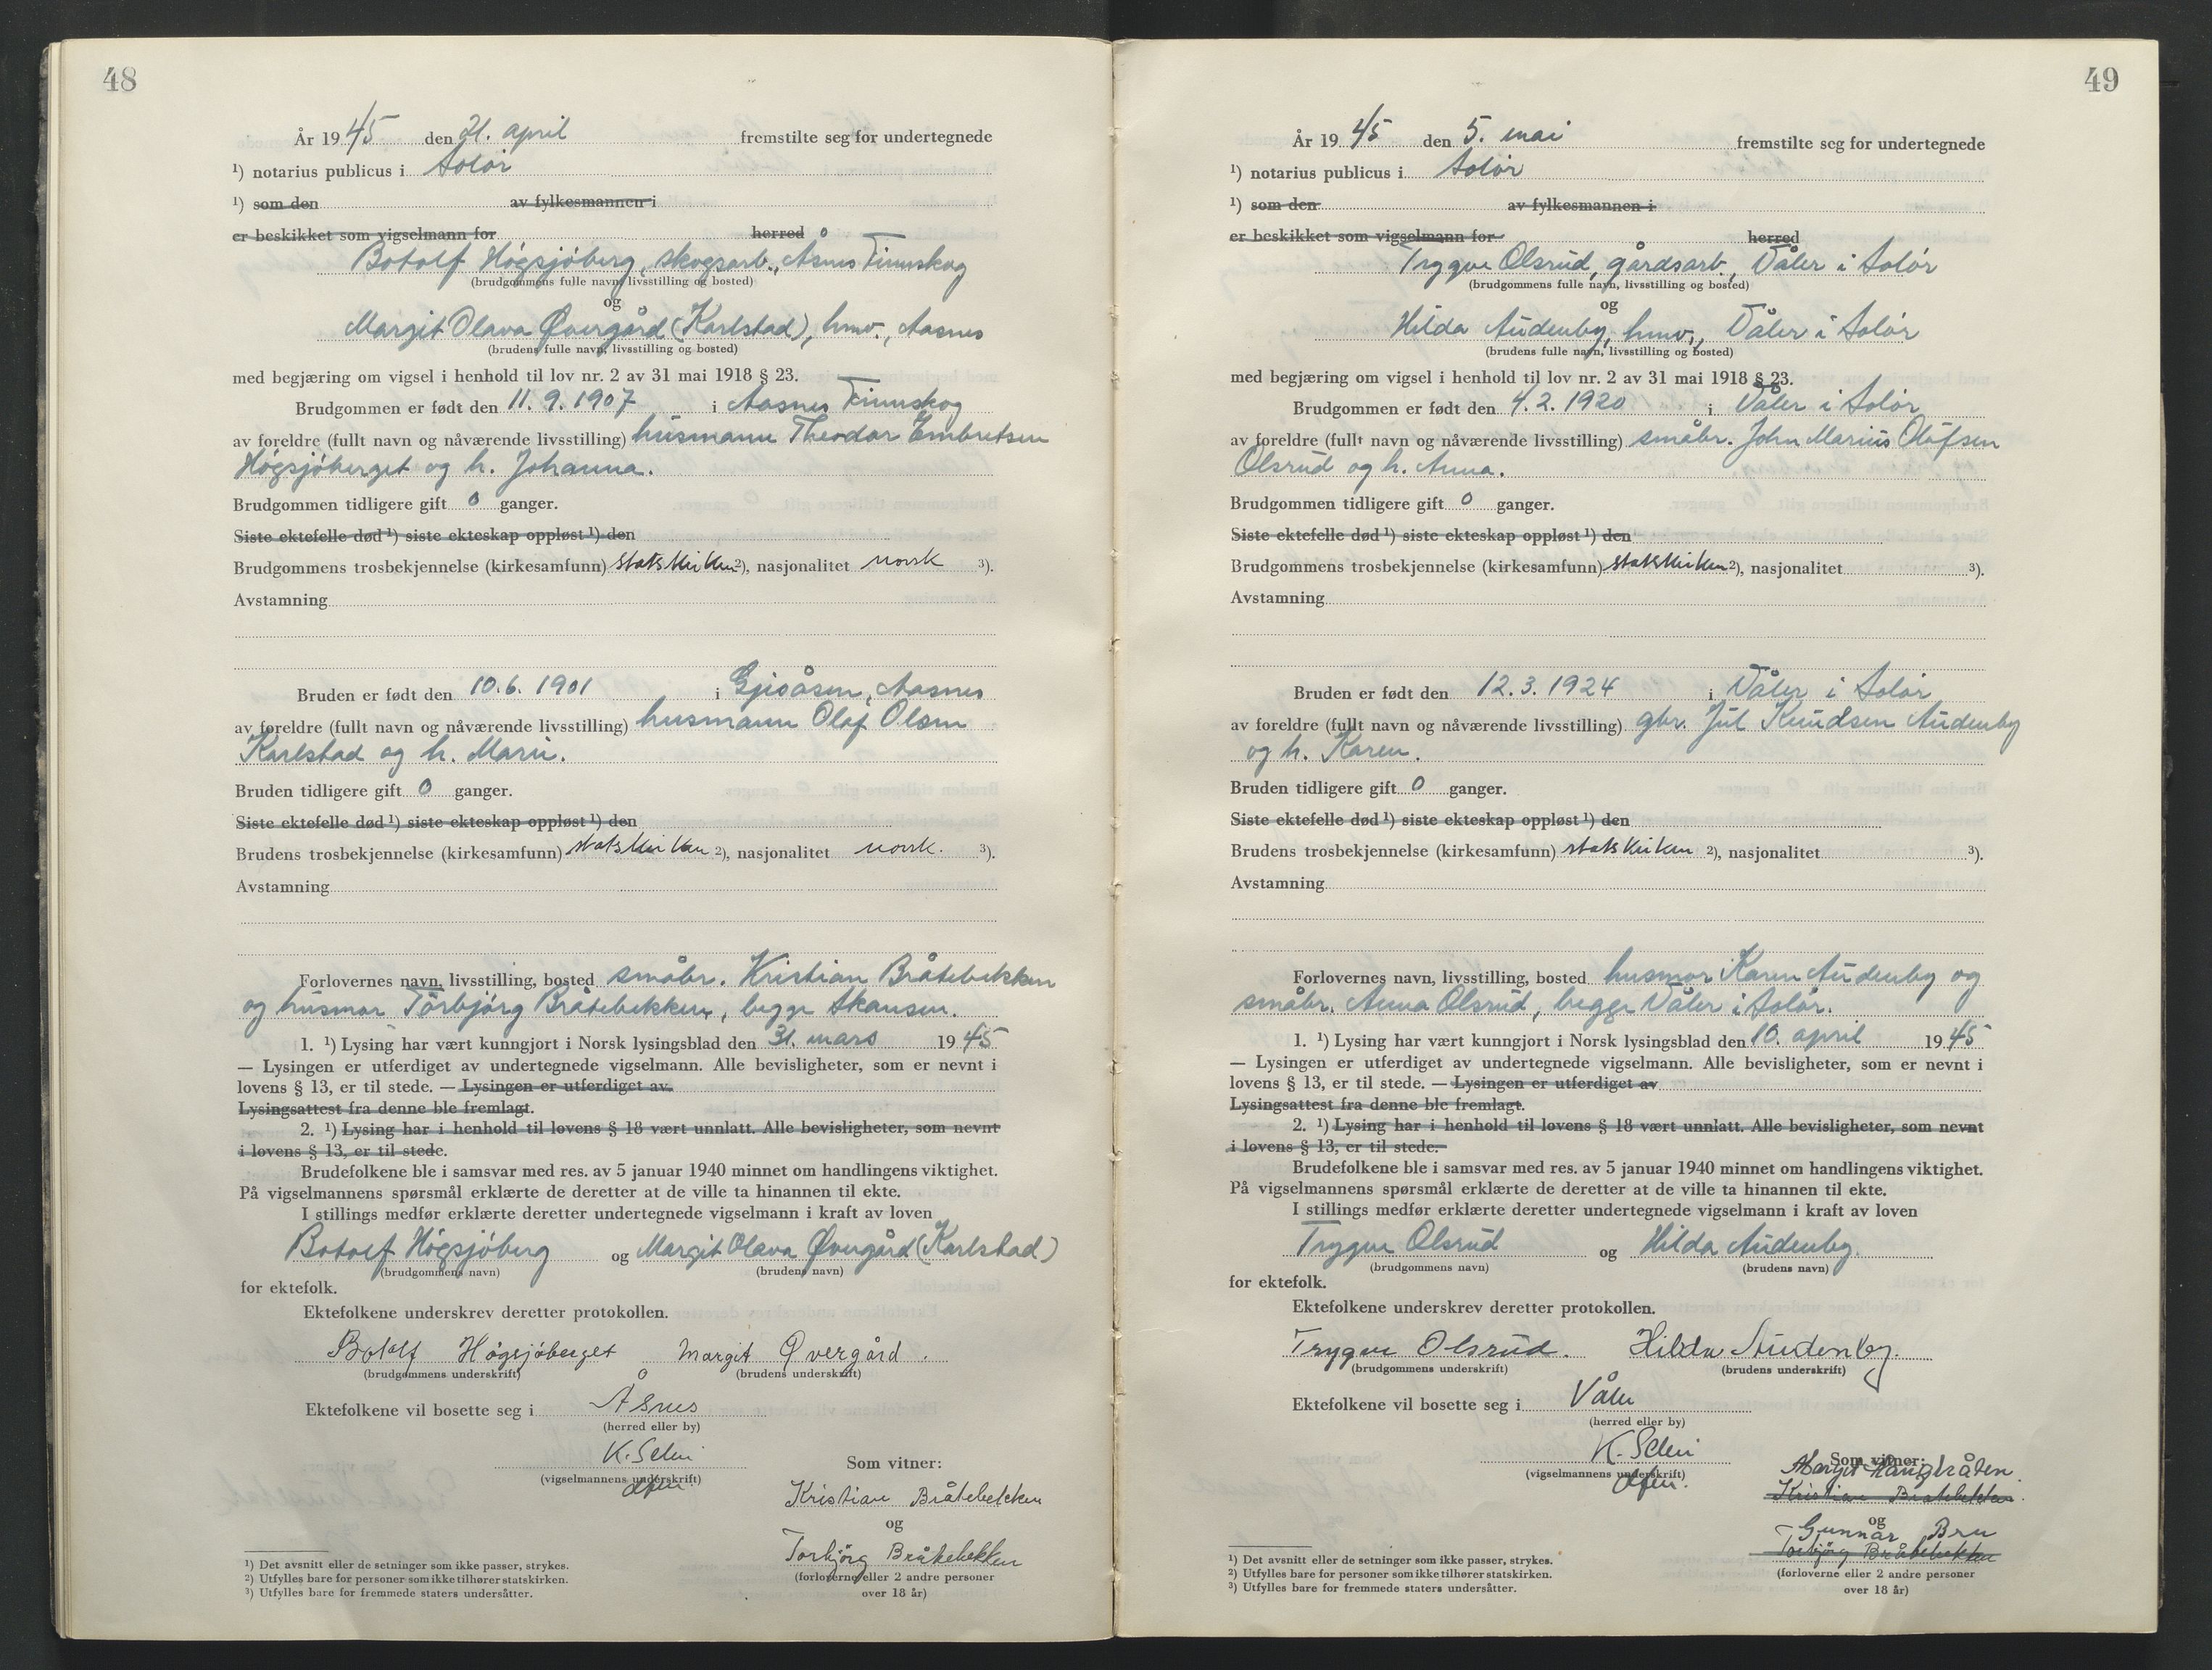 48
År 1945 den 21. april fremstilte seg for undertegnede
¹) notarius publicus i Solør
¹) som den av fylkesmannen i
er beskikket som vigselmann for herred
Botolf Høgsjøberg, skogsarb., Åsnes Finnskog
(brudgommens fulle navn, livsstilling og bosted)
og
Margit Olava Øvergård (Karlstad), hmv., Aasnes
(brudens fulle navn, livsstilling og bosted)
med begjæring om vigsel i henhold til lov nr. 2 av 31 mai 1918 § 23.
Brudgommen er født den 11. 9. 1907 i Aasnes Finnskog
av foreldre (fullt navn og nåværende livsstilling) husmann Theodor Embretsen
Høgsjøberget og h. Johanna.
Brudgommen tidligere gift 0 ganger.
Siste ektefelle død ¹) siste ekteskap oppløst ¹) den
Brudgommens trosbekjennelse (kirkesamfunn) statskirken ²), nasjonalitet norsk ³).
Avstamning
Bruden er født den 10. 6. 1901 i Gjesåsen, Aasnes
av foreldre (fullt navn og nåværende livsstilling) husmann Olaf Olsen
Karlstad og h. Marie.
Bruden tidligere gift 0 ganger.
Siste ektefelle død ¹) siste ekteskap oppløst ¹) den
Brudens trosbekjennelse (kirkesamfunn) statskirken ²), nasjonalitet norsk. ³).
Avstamning
Forlovernes navn, livsstilling, bosted småbr. Kristian Bråtebekken
og husmor Torbjörg Bråtebekken, begge Skansen.
1. ¹) Lysing har vært kunngjort i Norsk lysingsblad den 31. mars 1945
— Lysingen er utferdiget av undertegnede vigselmann. Alle bevisligheter, som er nevnt i
lovens § 13, er til stede. — Lysingen er utferdiget av
Lysingsattest fra denne ble fremlagt.
2. ¹) Lysing har i henhold til lovens § 18 vært unnlatt. Alle bevisligheter, som nevnt
i lovens § 13, er til stede.
Brudefolkene ble i samsvar med res. av 5 januar 1940 minnet om handlingens viktighet.
På vigselmannens spørsmål erklærte de deretter at de ville ta hinannen til ekte.
I stillings medfør erklærte deretter undertegnede vigselmann i kraft av loven
Botolf Høgsjøberg og Margit Olava Øvergård (Karlstad)
(brudgommens navn) (brudens navn)
for ektefolk.
Ektefolkene underskrev deretter protokollen.
Botolf Högsjöberget Margit Øvergård.
(brudgommens underskrift) (brudens underskrift)
Ektefolkene vil bosette seg i Åsnes
(herred eller by)
K. Selen
(vigselmannens underskrift)
Som vitner:
Kristian Bråtebekken
og
Torbjörg Bråtebekken
(forloverne eller 2 andre personer
over 18 år)
¹) Det avsnitt eller de setninger som ikke passer, strykes.
²) Utfylles bare for personer som ikke tilhører statskirken.
³) Utfylles bare for fremmede staters undersåtter.
49
År 1945 den 5. mai fremstilte seg for undertegnede
¹) notarius publicus i Solør
¹) som den av fylkesmannen i
er beskikket som vigselmann for herred
Trygve Olsrud, gårdsarb., Våler i Solør
(brudgommens fulle navn, livsstilling og bosted)
og
Hilda Audenby, hmv., Våler i Solør
(brudens fulle navn, livsstilling og bosted)
med begjæring om vigsel i henhold til lov nr. 2 av 31 mai 1918 § 23.
Brudgommen er født den 4. 2. 1920 i Våler i Solør
av foreldre (fullt navn og nåværende livsstilling) småbr. John Marius Olafsen
Olsrud og h. Anna.
Brudgommen tidligere gift 0 ganger.
Siste ektefelle død ¹) siste ekteskap oppløst ¹) den
Brudgommens trosbekjennelse (kirkesamfunn) statskirken ²), nasjonalitet ³).
Avstamning
Bruden er født den 12. 3. 1924 i Våler i Solør
av foreldre (fullt navn og nåværende livsstilling) gbr. Jul Knudsen Audenby
og h. Karen.
Bruden tidligere gift 0 ganger.
Siste ektefelle død ¹) siste ekteskap oppløst ¹) den
Brudens trosbekjennelse (kirkesamfunn) statskirken ²), nasjonalitet ³).
Avstamning
Forlovernes navn, livsstilling, bosted husmor Karen Audenby og
småbr. Anna Olsrud, begge Våler i Solør.
1. ¹) Lysing har vært kunngjort i Norsk lysingsblad den 10. april 1945
— Lysingen er utferdiget av undertegnede vigselmann. Alle bevisligheter, som er nevnt i
lovens § 13, er til stede. — Lysingen er utferdiget av
Lysingsattest fra denne ble fremlagt.
2. ¹) Lysing har i henhold til lovens § 18 vært unnlatt. Alle bevisligheter, som nevnt
i lovens § 13, er til stede.
Brudefolkene ble i samsvar med res. av 5 januar 1940 minnet om handlingens viktighet.
På vigselmannens spørsmål erklærte de deretter at de ville ta hinannen til ekte.
I stillings medfør erklærte deretter undertegnede vigselmann i kraft av loven
Trygve Olsrud og Hilda Audenby.
(brudgommens navn) (brudens navn)
for ektefolk.
Ektefolkene underskrev deretter protokollen.
Trygve Olsrud. Hilda Audenby.
(brudgommens underskrift) (brudens underskrift)
Ektefolkene vil bosette seg i Våler
(herred eller by)
K. Selen
(vigselmannens underskrift)
Som vitner:
Margit Haugbråten.
Kristian Bråtebekken.
og
Gunnar Bru
Torbjörg Bråtebekken
(forloverne eller 2 andre personer
over 18 år)
¹) Det avsnitt eller de setninger som ikke passer, strykes.
²) Utfylles bare for personer som ikke tilhører statskirken.
³) Utfylles bare for fremmede staters undersåtter.